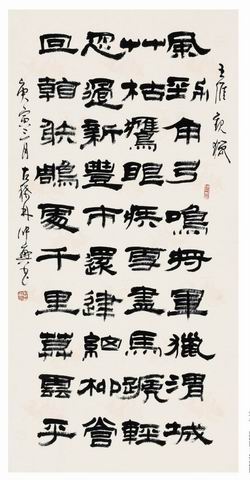 王維觀獵
風勁角弓鳴將軍獵渭城
艸枯鷹眼疾雪盡馬蹄輕
忽過新豐市還歸細柳營
回看射鵰處千里暮雲平
庚寅三月